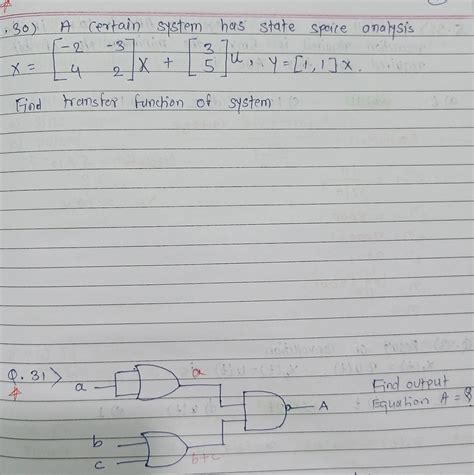 .30) A Certain system has state speice analysis
x = [-2 -3 4 2] x + [3 5] u, y = [1, 1] x.
Find transfer function of system
Q. 31>
a
a
A
Find output
Equation A = ?
b
c
b+c